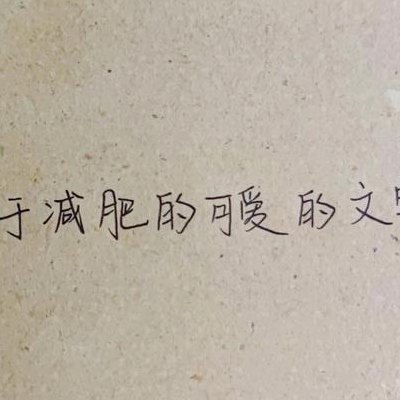 于减肥的可爱的文